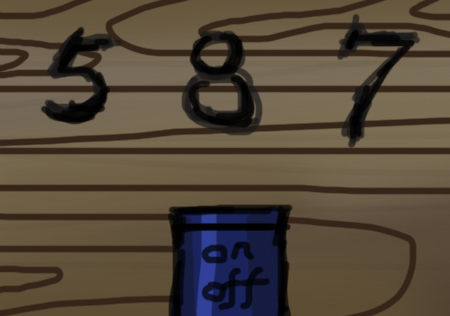 5 8 7
on
off